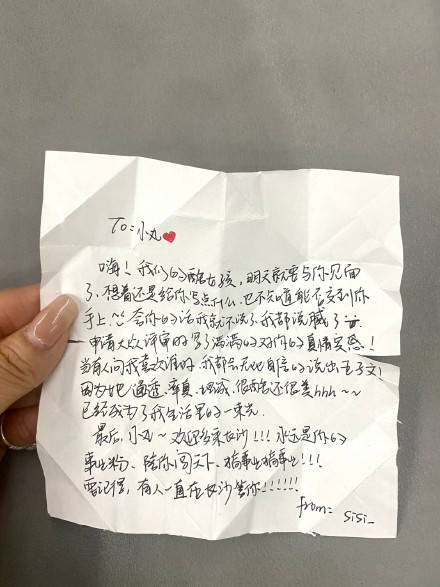 To: 小丸
嗨！我们的酷女孩，明天就要与你见面
了，想着还是给你写点什么，也不知道能否交到你
手上^^ 会你的话我就不说了，我都说腻了
申请大众评审的写了满满的对你的真情实感！
当有人问我喜欢谁时，我都会无比自信的说出
因为她通透、率真、坦诚、很酷还很美hhh～～
已经成为了我生活里的一束光
最后，小丸～欢迎来长沙！！！永远是你的
事业粉，陪你闯天下，搞事业搞事业！！！
要记得，有人一直在长沙等你！！！！！！
from: sisi_